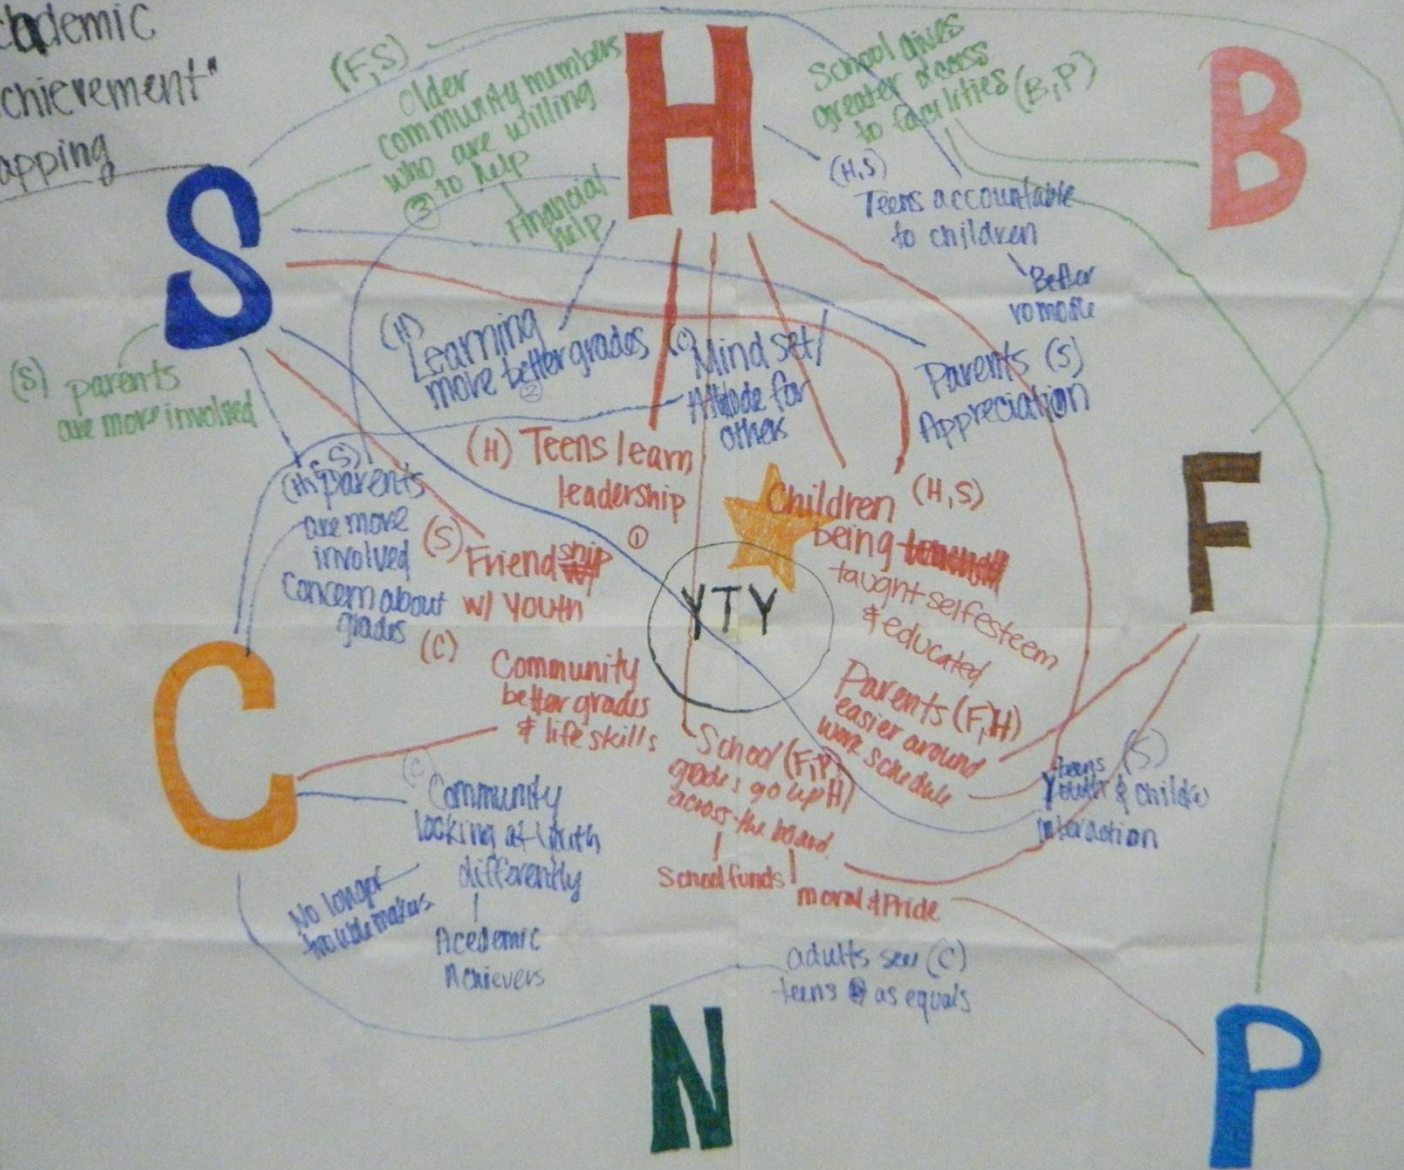 ademic
chievement"
apping
S
H
B
C
F
N
P
YTY
(F,S)
Older
community members
who are willing
③ to help
Financial
help
School gives
greater access
to facilities (B,P)
(H,S)
Teens accountable
to children
Better
(S) parents
are more involved
(H)
Learning
more better grades
②
(C)
Mind set/
Attitude for
others
Parents (S)
Appreciation
(H) Teens learn
leadership
①
Children (H,S)
being
taught selfesteem
& educated
(H, S)
parents
are more
involved
Concern about
grades
(S) Friendship
w/ Youth
(C)
Community
better grades
& life skills
Parents (F,H)
easier around
work schedule
School (F,P,
grades go up H)
across the board
School funds
moral & Pride
(S)
teens
Youth & Childrn
Interaction
(C
Community
looking at Youth
differently
No longer
troublemakers
Acedemic
Achievers
adults see (C)
teens as equals